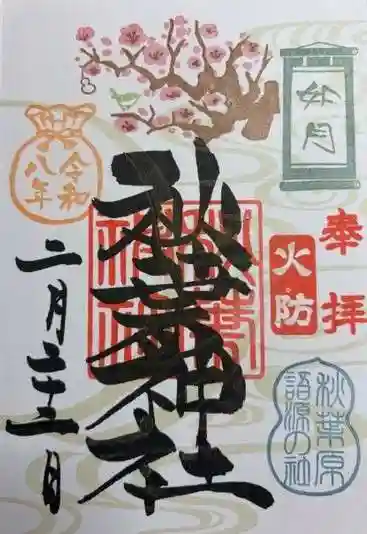 如月
奉拝
火防
秋葉神社
秋葉
神社
秋葉原
語源の社
令和
八年
二月二十二日